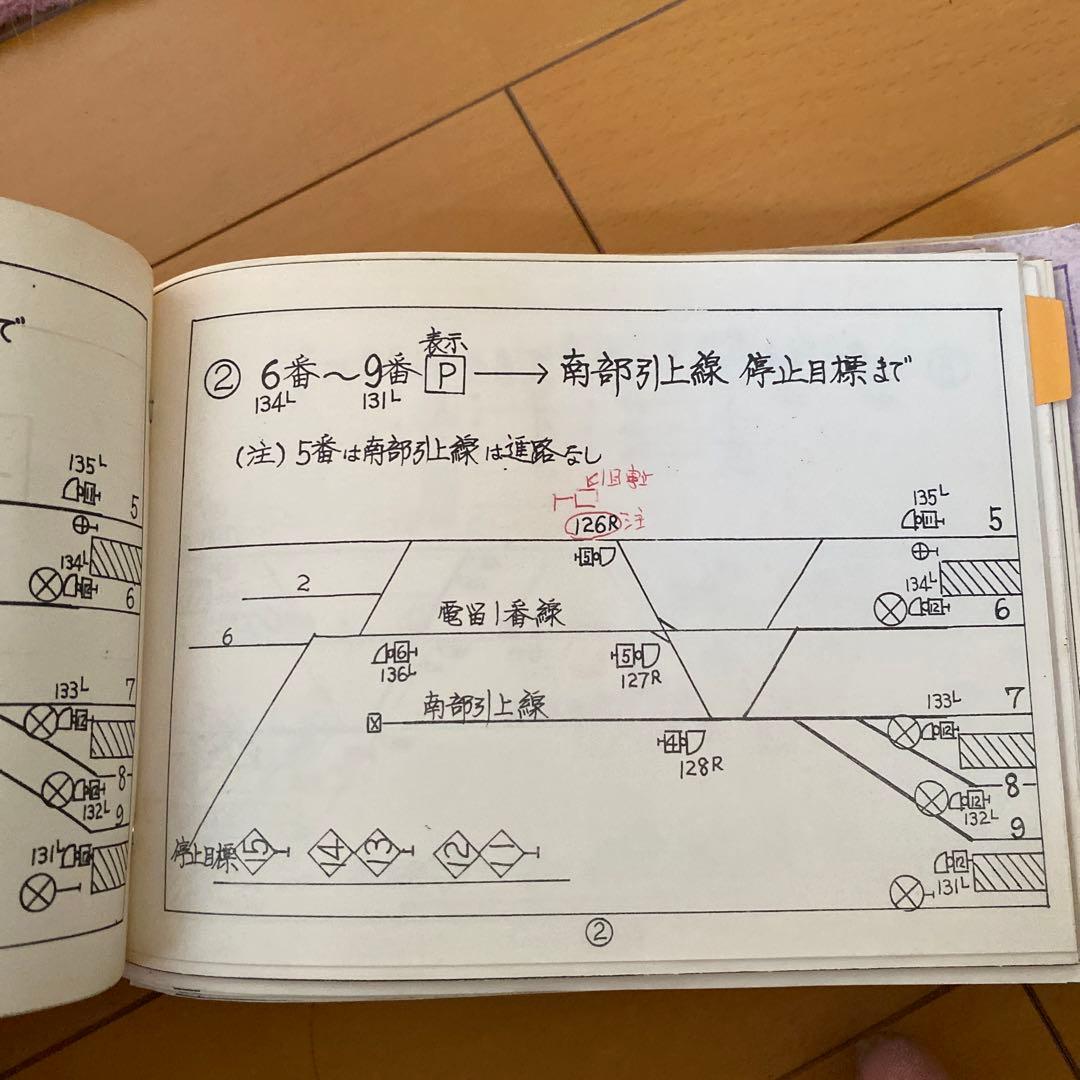 で
135L
5
134L
6
7
133L
8
132L
9
131L
表示
② 6番～9番 P → 南部引上線 停止目標まで
134L 131L
(注) 5番は南部引上線は進路なし
126R 注
135L
5
5
134L
12
6
2
電留1番線
6
6
136L
5
127R
133L
12
7
南部引上線
X
4
128R
8
12
132L
9
停止目標 15 14 13 12 11
12
131L
②